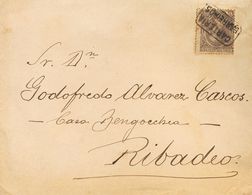 Sr. Dn
Godofredo Alvarez Cascos.
Casa Bengoechea
Ribadeo.